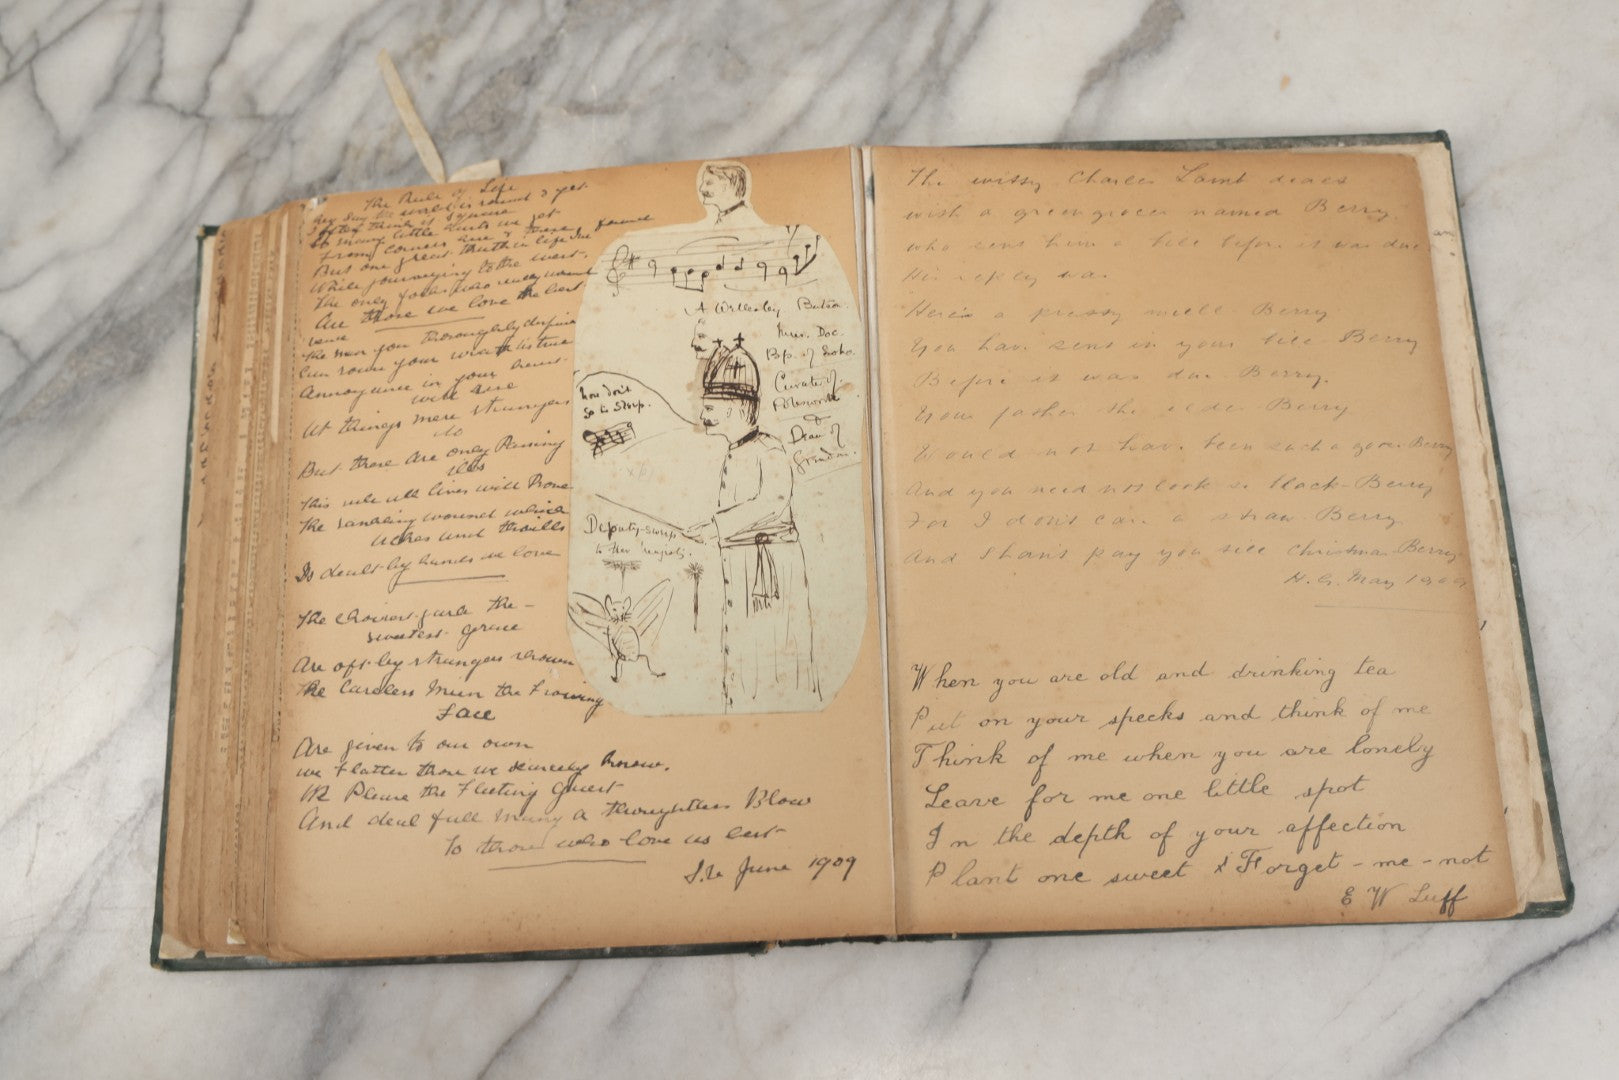 The Rule of Life
They say the world is round & yet
I often think it square
So many little hurts we get
From corners here & there
But one great truth in life I've found
While journeying to the west
The only folks who really wound
Are those we love the best
The man you thoroughly despise
Can rouse your wrath its true
Annoyance in your heart
will rise
At things mere strangers
do
But those are only Passing
ills
This rule all lives will Prove
The rankling wound which
aches and thrills
Is dealt by hands we love
The choicest garb the
sweetest grace
Are oft by strangers shown
The Careless Mien the Frowning
Face
Are given to our own
We flatter those we scarcely know.
We Please the Fleeting Guest
And deal full many a thoughtless Blow
To those who love us best
June 1909
A Wellesley Butson
Mus. Doc.
Bp. of Soho.
Curate of
Polesworth
&
Dean of
how don't
go to sleep.
Deputy-sweep
to the
The witty Charles Lamb deals
with a greengrocer named Berry.
who sent him a bill before it was due
His reply was.
Here's a pretty mill-Berry
You have sent in your bill Berry
Before it was due Berry.
Your father the elder Berry
Would not have been such a goose Berry
And you need not look so black-Berry
For I don't care a straw Berry
And I shan't pay you till Christmas Berry
H. G. May 1909
When you are old and drinking tea
Put on your specks and think of me
Think of me when you are lonely
Leave for me one little spot
In the depth of your affection
Plant one sweet Forget-me-not
E W Luff